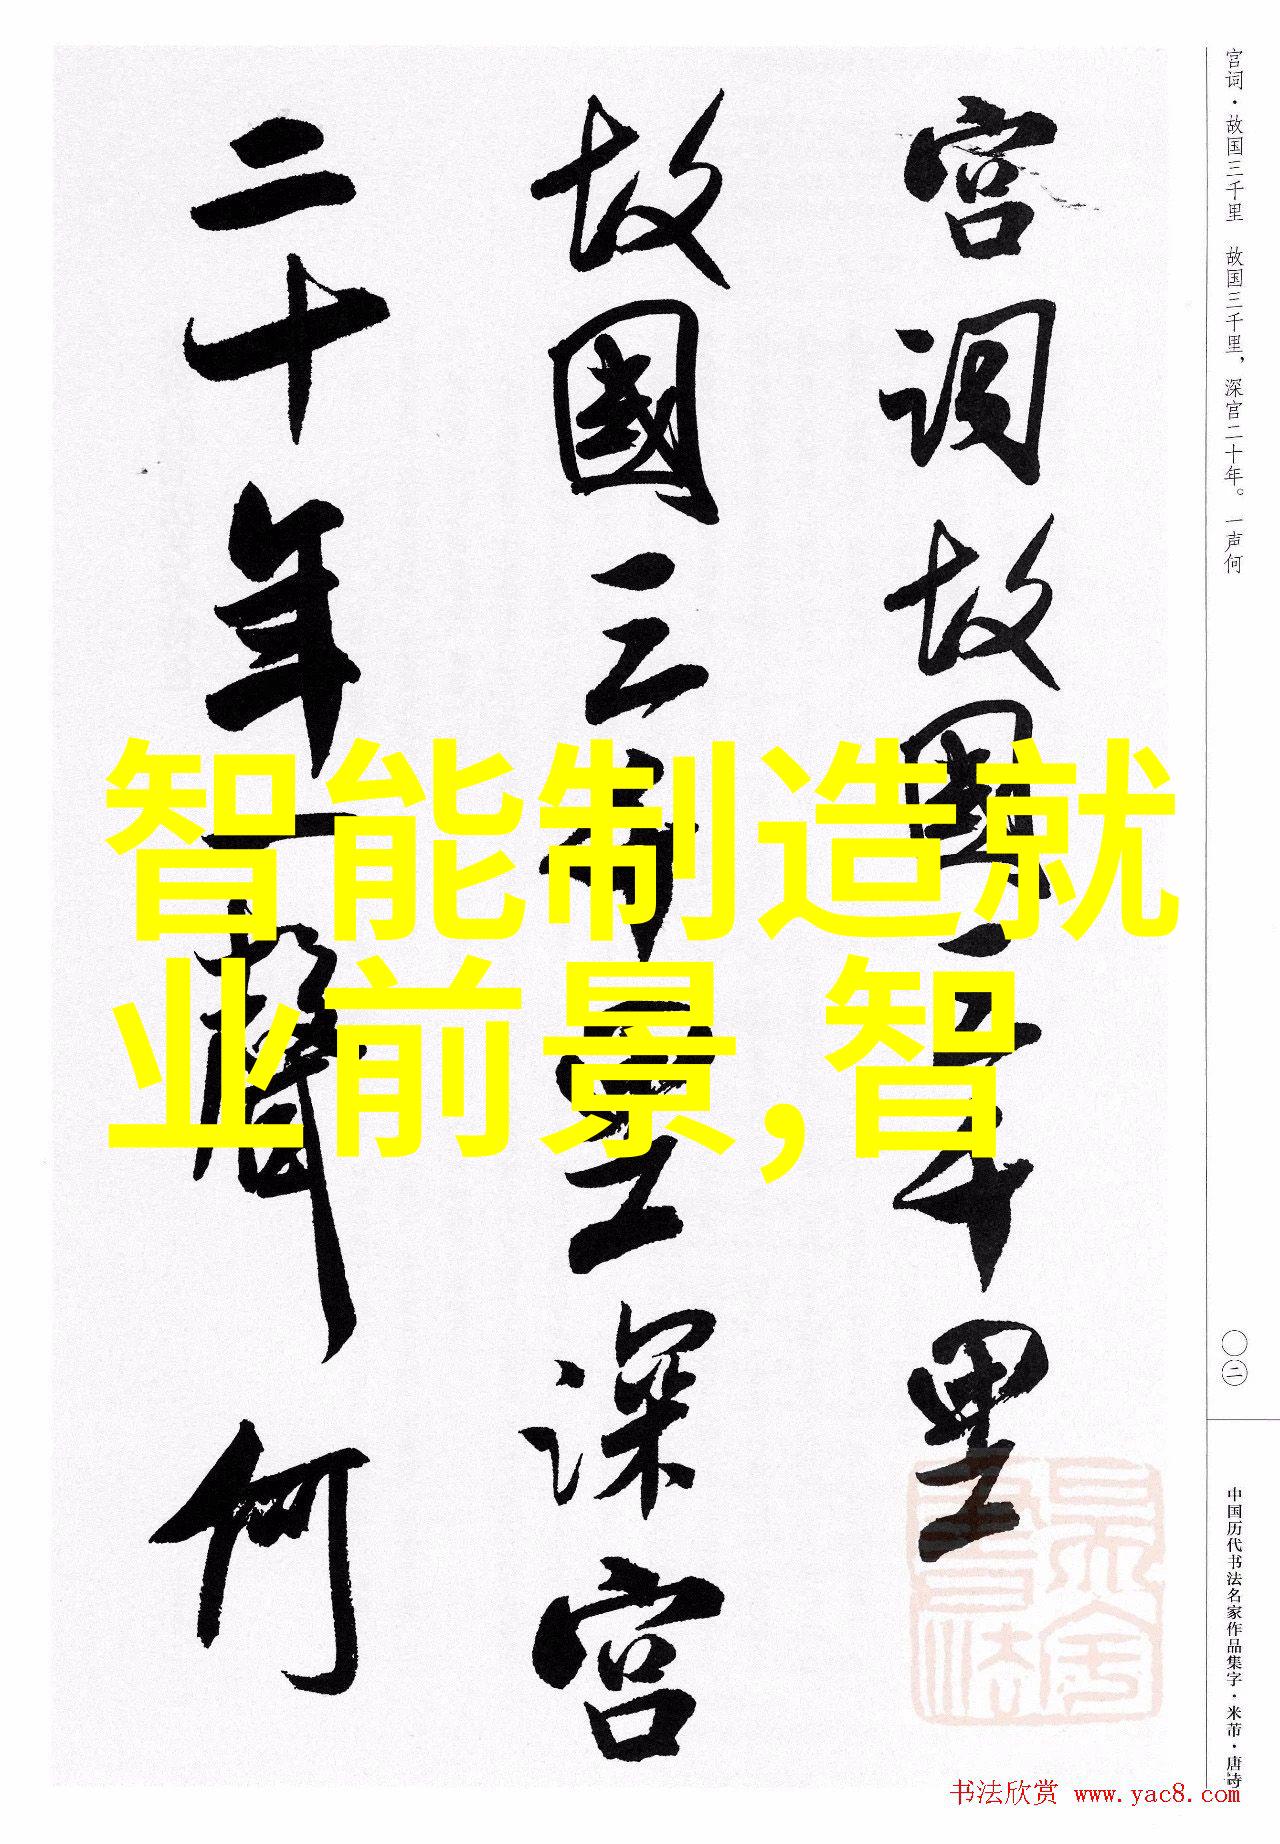 宫词故国三千里
故國三千里深宫
二十年一聲何
宫词·故国三千里 故国三千里，深宫二十年。一声何
〇二
中国历代书法名家作品集字·米芾·唐诗
智能制造就
业前景,智
书法欣赏 www.yac8.com